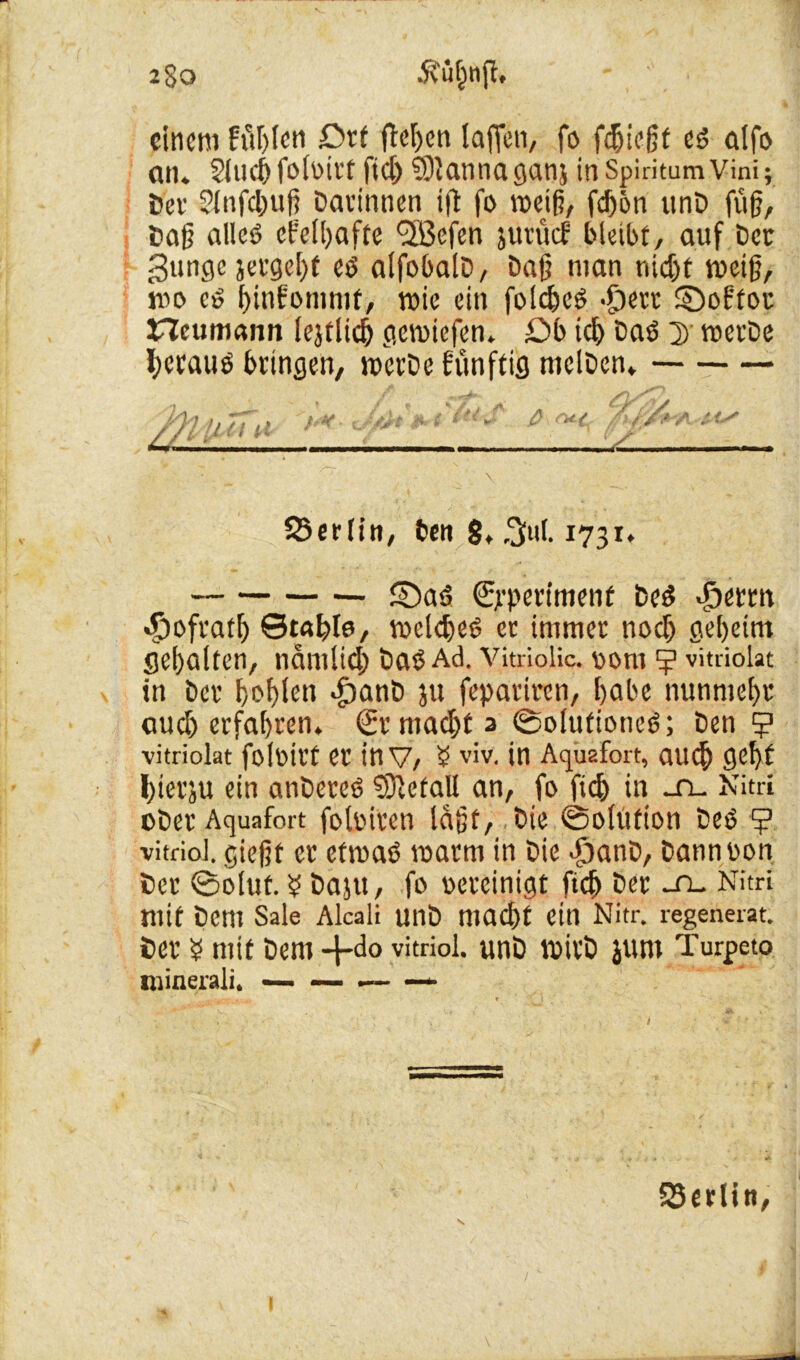 280 Kühnst.
einem kühlen Ort stehen lassen, so schießt es also
an. Auch solvirt sich Manna ganz in Spiritum Vini;
der Anschuß darinnen ist so weiß, schön und süß,
daß alles ekelhafte Wesen zurück bleibt, auf der
Zunge zergeht es alsobald, daß man nicht weiß,
wo es hinkommt, wie ein solches Herr Doktor
Neumann leztlich gewiesen. Ob ich das ☽ werde
heraus bringen, werde künftig melden. — — —
Berlin, den 8. Jul. 1731.
— — — — Das Experiment des Herrn
Hofrath Stahls, welches er immer noch geheim
gehalten, nämlich das Ad. Vitriolic. vom 🜿 vitriolat
in der hohlen Hand zu separiren, habe nunmehr
auch erfahren. Er macht 2 Solutiones; den 🜿
vitriolat solvirt er in ▽, ☿ viv. in Aquafort, auch geht
hierzu ein anderes Metall an, so sich in Nitri
oder Aquafort solviren läßt, die Solution des 🜿
vitriol. gießt er etwas warm in die Hand, dann von
der Solut. ☿ dazu, so vereinigt sich der Nitri
mit dem Sale Alcali und macht ein Nitr. regenerat.
der ☿ mit dem +do vitriol. und wird zum Turpeto
minerali. — — — —
Berlin,